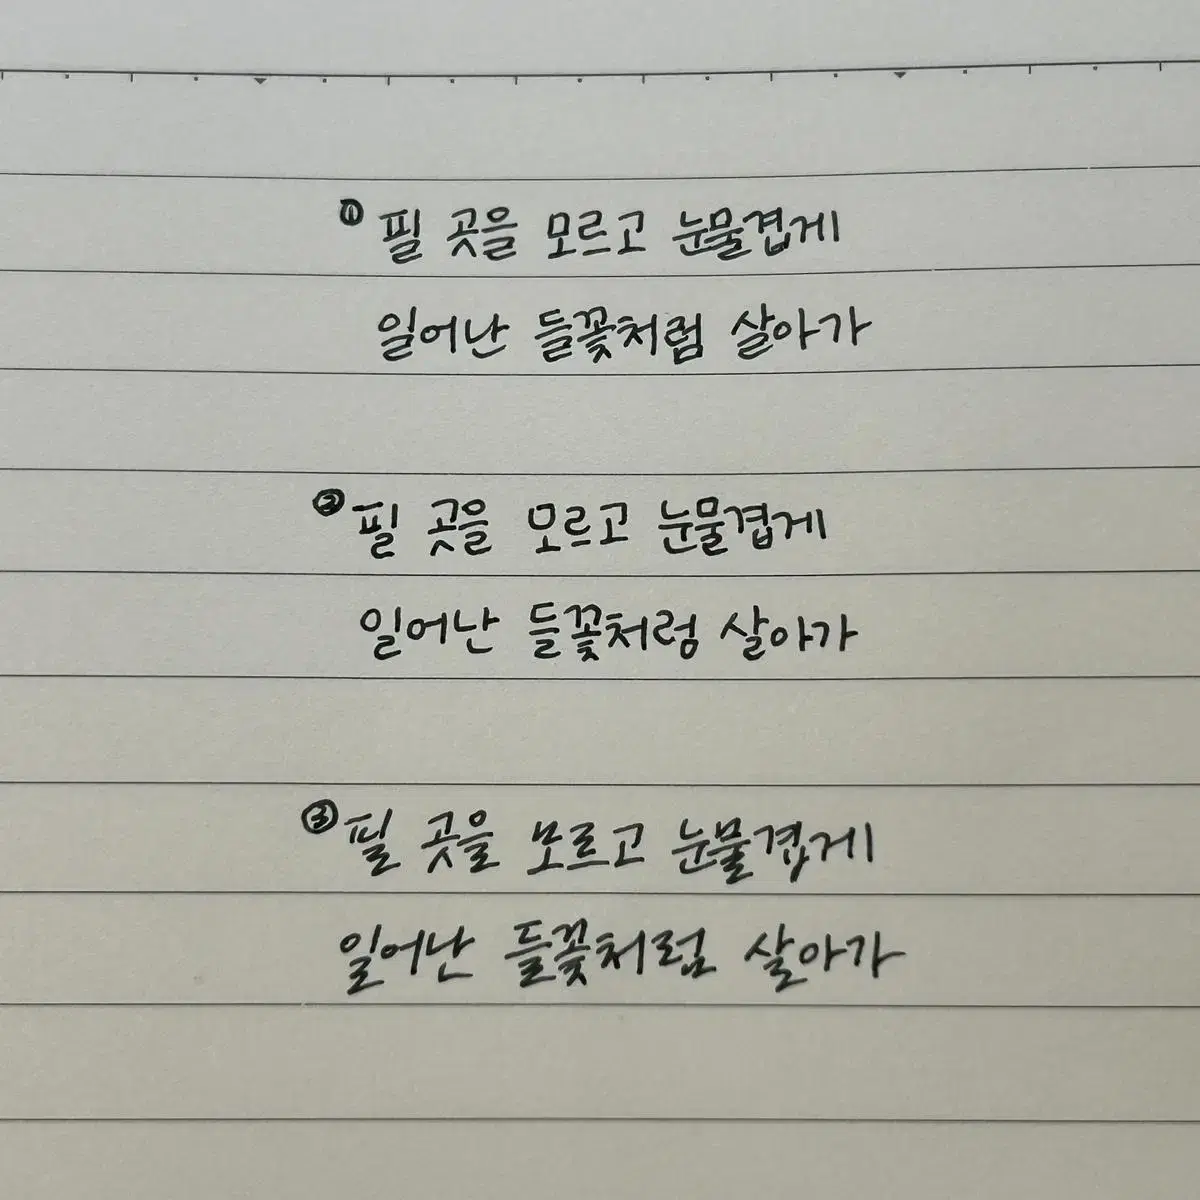 ① 필 곳을 모르고 눈물겹게
일어난 들꽃처럼 살아가
② 필 곳을 모르고 눈물겹게
일어난 들꽃처렁 살아가
③ 필 곳을 모르고 눈물겹게
일어난 들꽃처럼 살아가